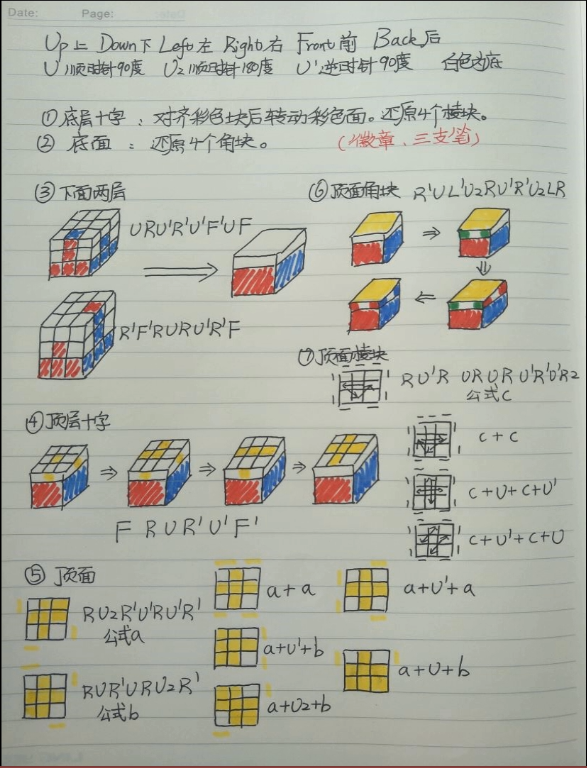 Date: Page:
Up上 Down下 Left左 Right右 Front前 Back后
U顺时针90度 U2顺时针180度 U'逆时针90度 白色为底
① 底层十字：对齐彩色块后转动彩色面。还原4个棱块。
② 底面：还原4个角块。 (徽章、三支笔)
③ 下面两层
URU'R'U'F'UF
R'F'RURU'R'F
⑥ 顶面角块 R'UL'U2RU'R'U2LR
⑦ 顶面棱块
RU'R URUR U'R'U'R2
公式c
c+c
c+U+c+U'
c+U'+c+U
④ 顶层十字
F RUR'U' F'
⑤ 顶面
RU2R'U'RU'R'
公式a
RUR'URU2R'
公式b
a+a
a+U'+b
a+U2+b
a+U'+a
a+U+b